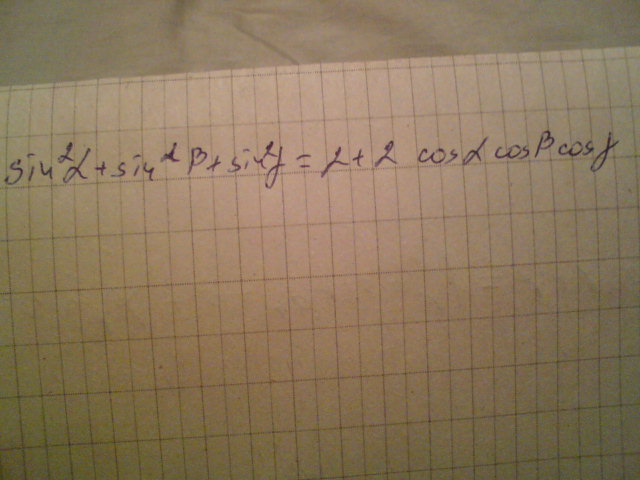 sin²α+sin²β+sin²γ=2+2 cosα cosβ cosγ